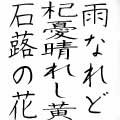 雨なれど
杞憂晴れし黄
石蕗の花